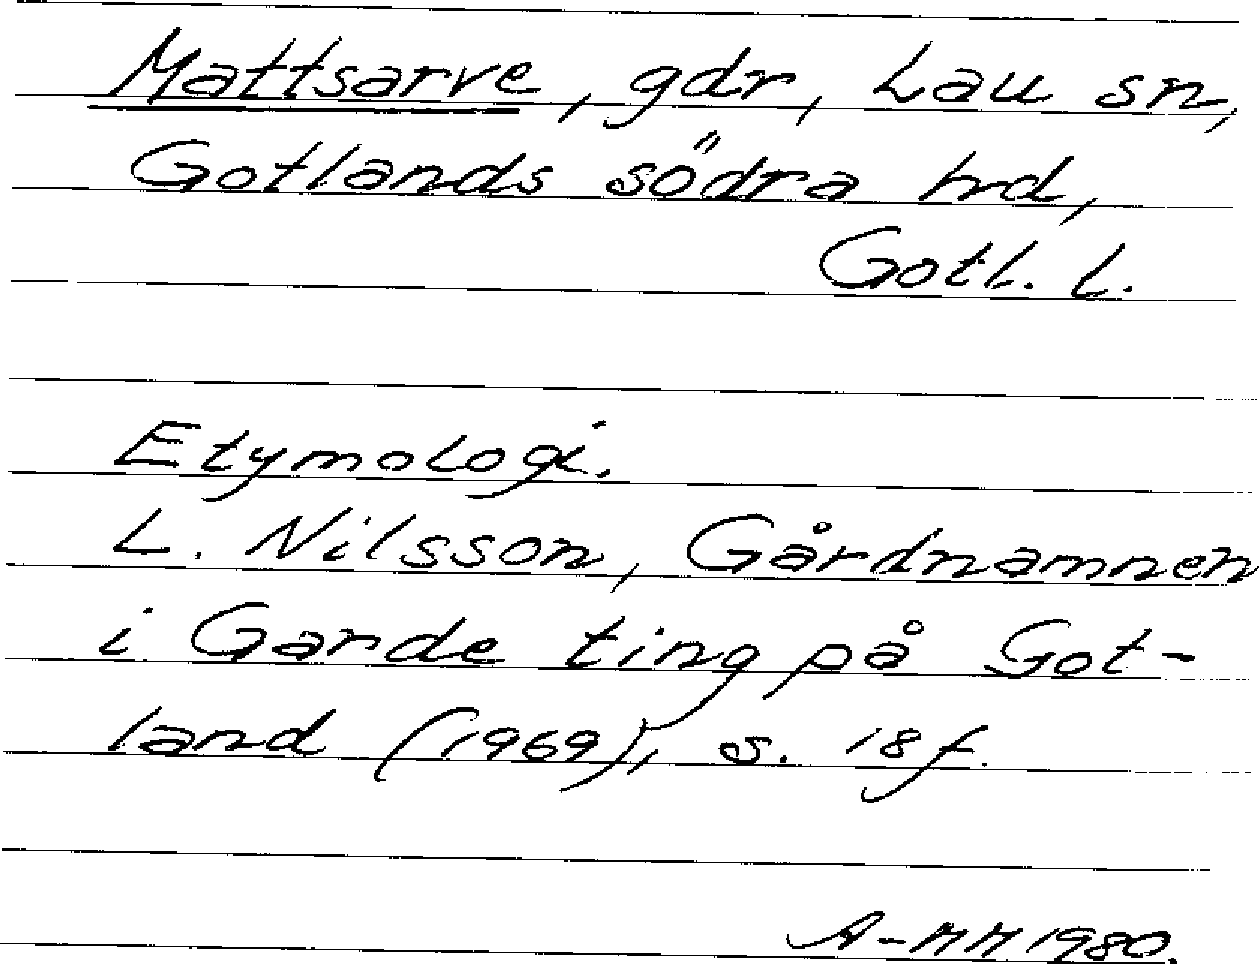 Mattsarve, gdr, Lau sn,
Gotlands södra hd,
Gotl. l.
Etymologi.
L. Nilsson, Gårdnamnen
i Garde ting på Got-
land (1969), s. 18 f.
A-MM 1980.